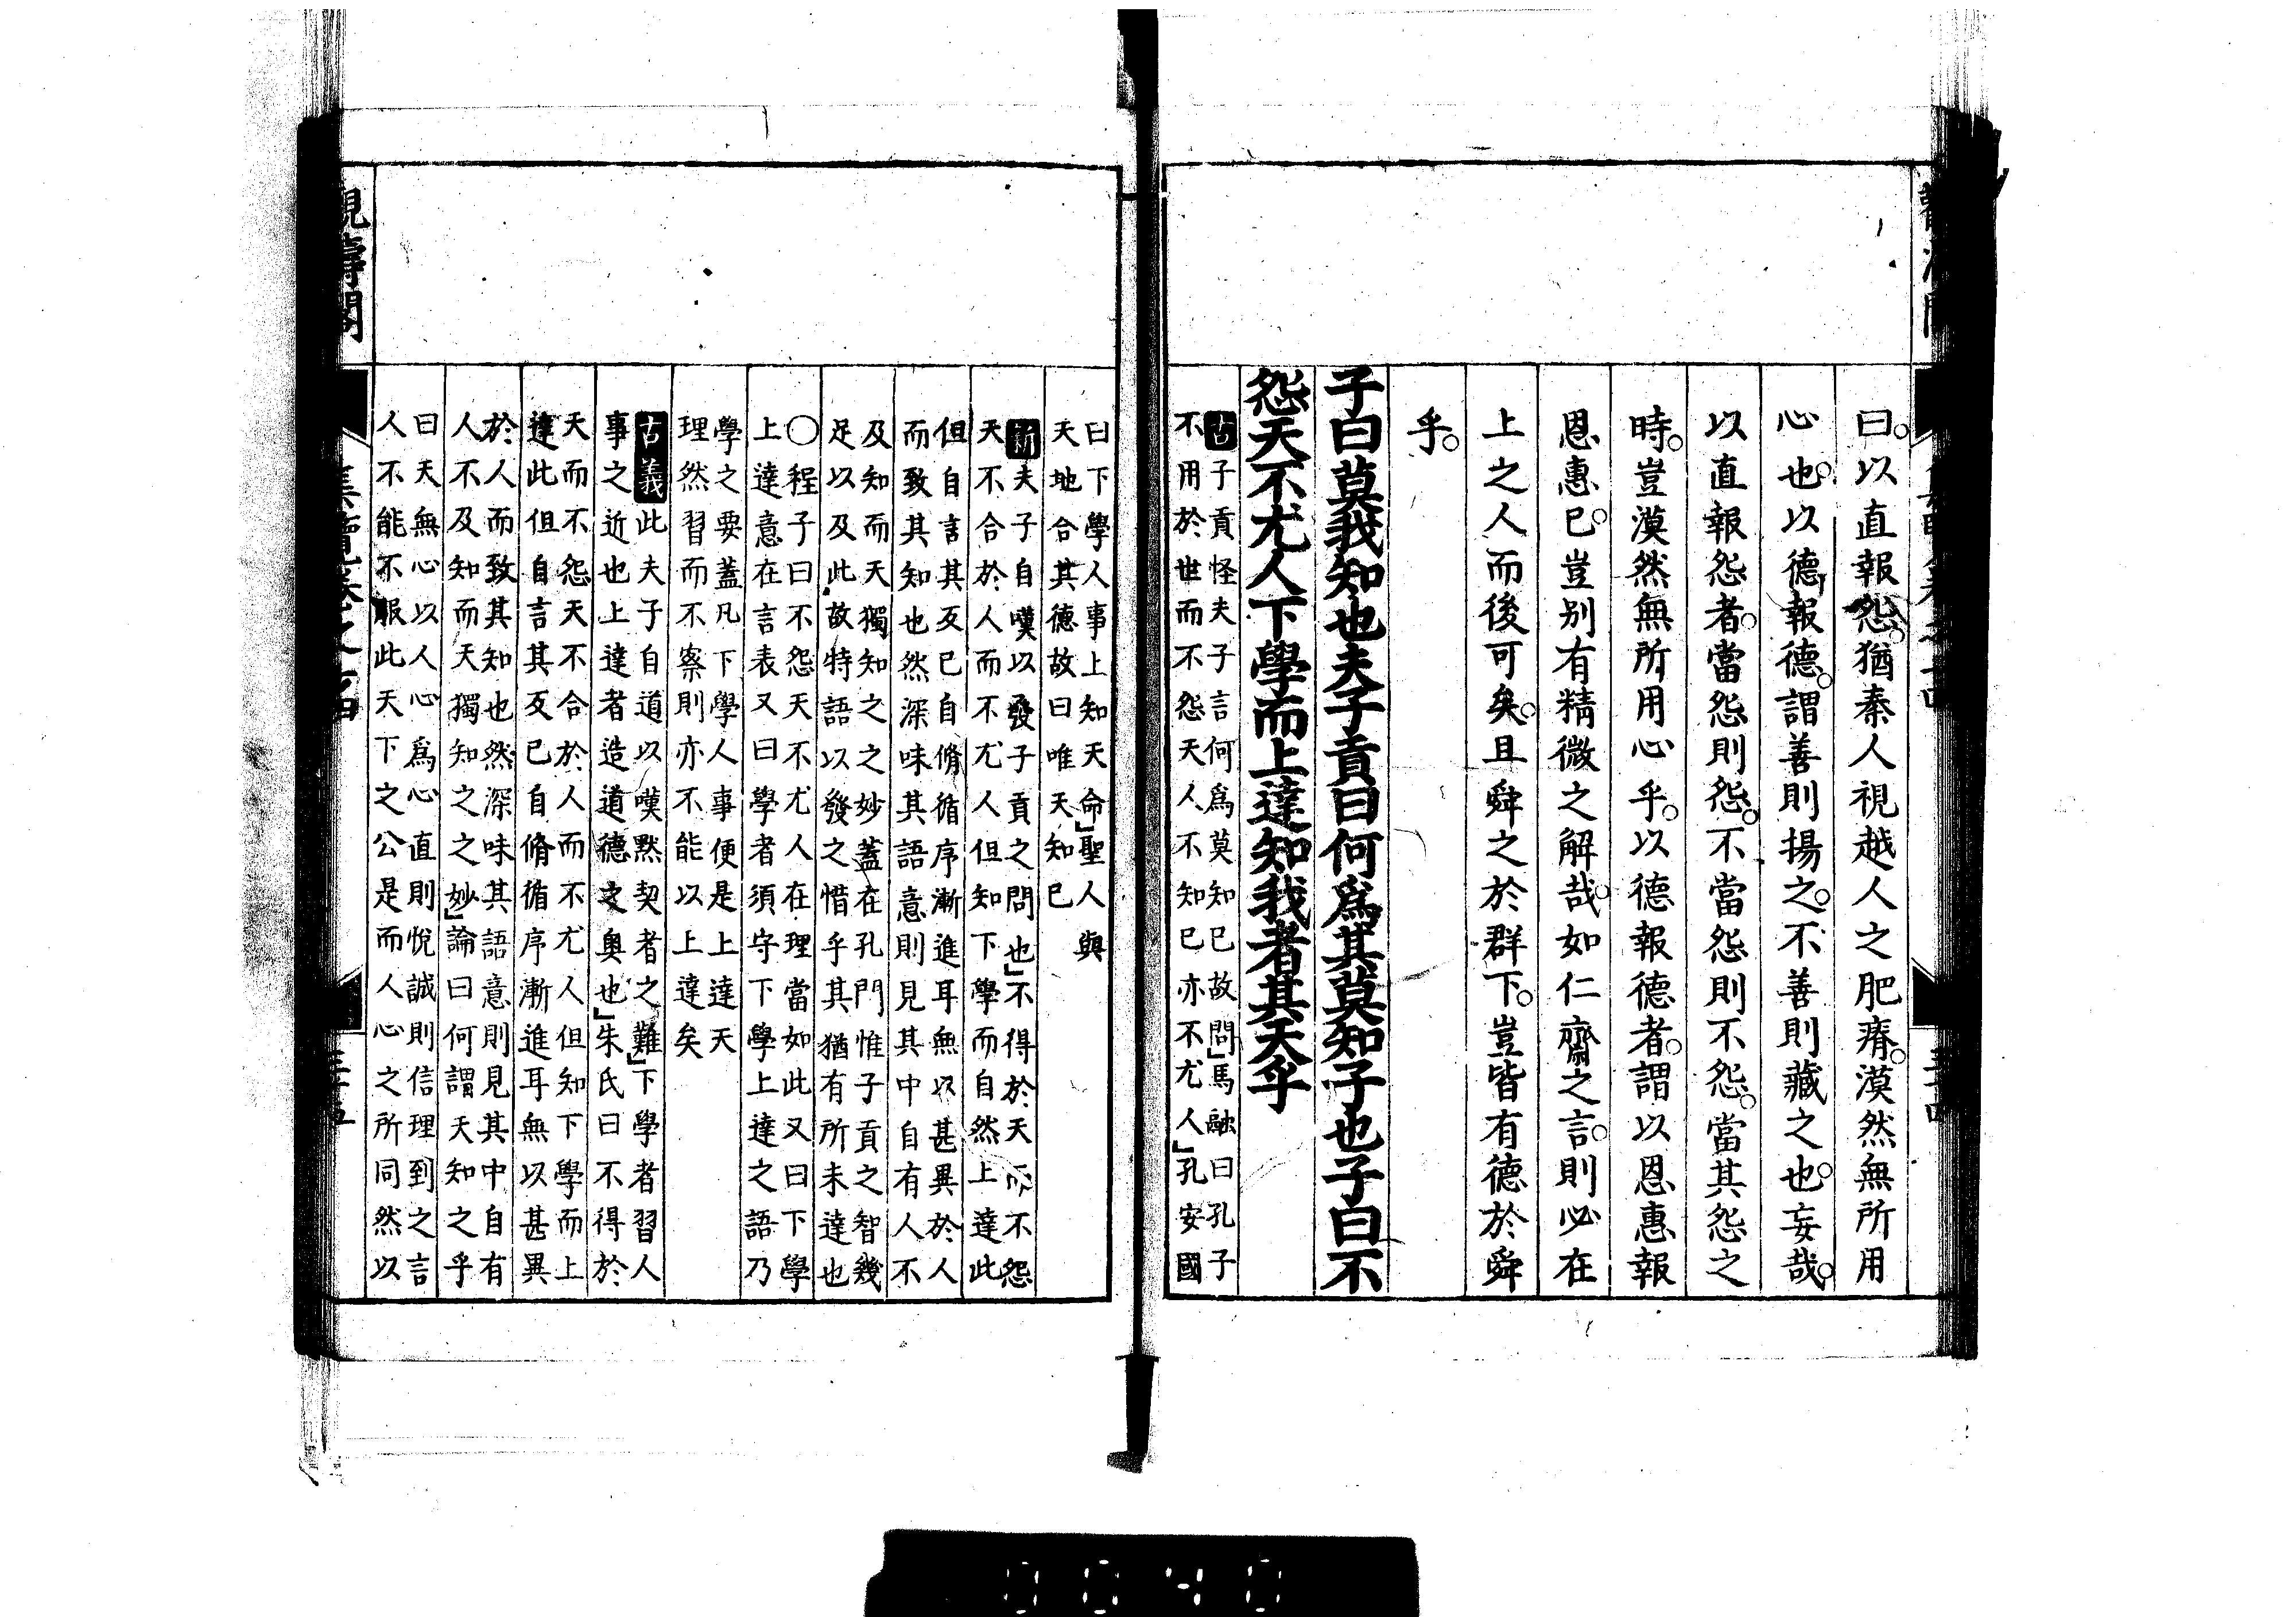 曰以直報怨猶秦人視越人之肥瘠漠然無所用
心也以德報德謂善則揚之不善則藏之也妄哉
以直報怨者當怨則怨不當怨則不怨當其怨之
時豈漠然無所用心乎以德報德者謂以恩惠報
恩惠已豈別有精微之解哉如仁齋之言則必在
上之人而後可矣且舜之於群下豈皆有德於舜
乎
子曰莫我知也夫子貢曰何爲其莫知子也子曰不
怨天不尤人下學而上達知我者其天乎
古子貢怪夫子言何爲莫知已故問馬融曰孔子
不用於世而不怨天人不知已亦不尤人孔安國
曰下學人事上知天命聖人與
天地合其德故曰唯天知已
新夫子自嘆以發子貢之問也不得於天而不怨
天不合於人而不尤人但知下學而自然上達此
但自言其反已自脩循序漸進耳無以甚異於人
而致其知也然深味其語意則見其中自有人不
及知而天獨知之之妙蓋在孔門惟子貢之智幾
足以及此故特語以發之惜乎其猶有所未達也
○程子曰不怨天不尤人在理當如此又曰下學
上達意在言表又曰學者須守下學上達之語乃
學之要蓋凡下學人事便是上達天
理然習而不察則亦不能以上達矣
古義此夫子自道以嘆默契者之難下學者習人
事之近也上達者造道德之奧也朱氏曰不得於
天而不怨天不合於人而不尤人但知下學而上
達此但自言其反已自脩循序漸進耳無以甚異
於人而致其知也然深味其語意則見其中自有
人不及知而天獨知之之妙論曰何謂天知之乎
曰天無心以人心爲心直則悅誠則信理到之言
人不能不服此天下之公是而人心之所同然以